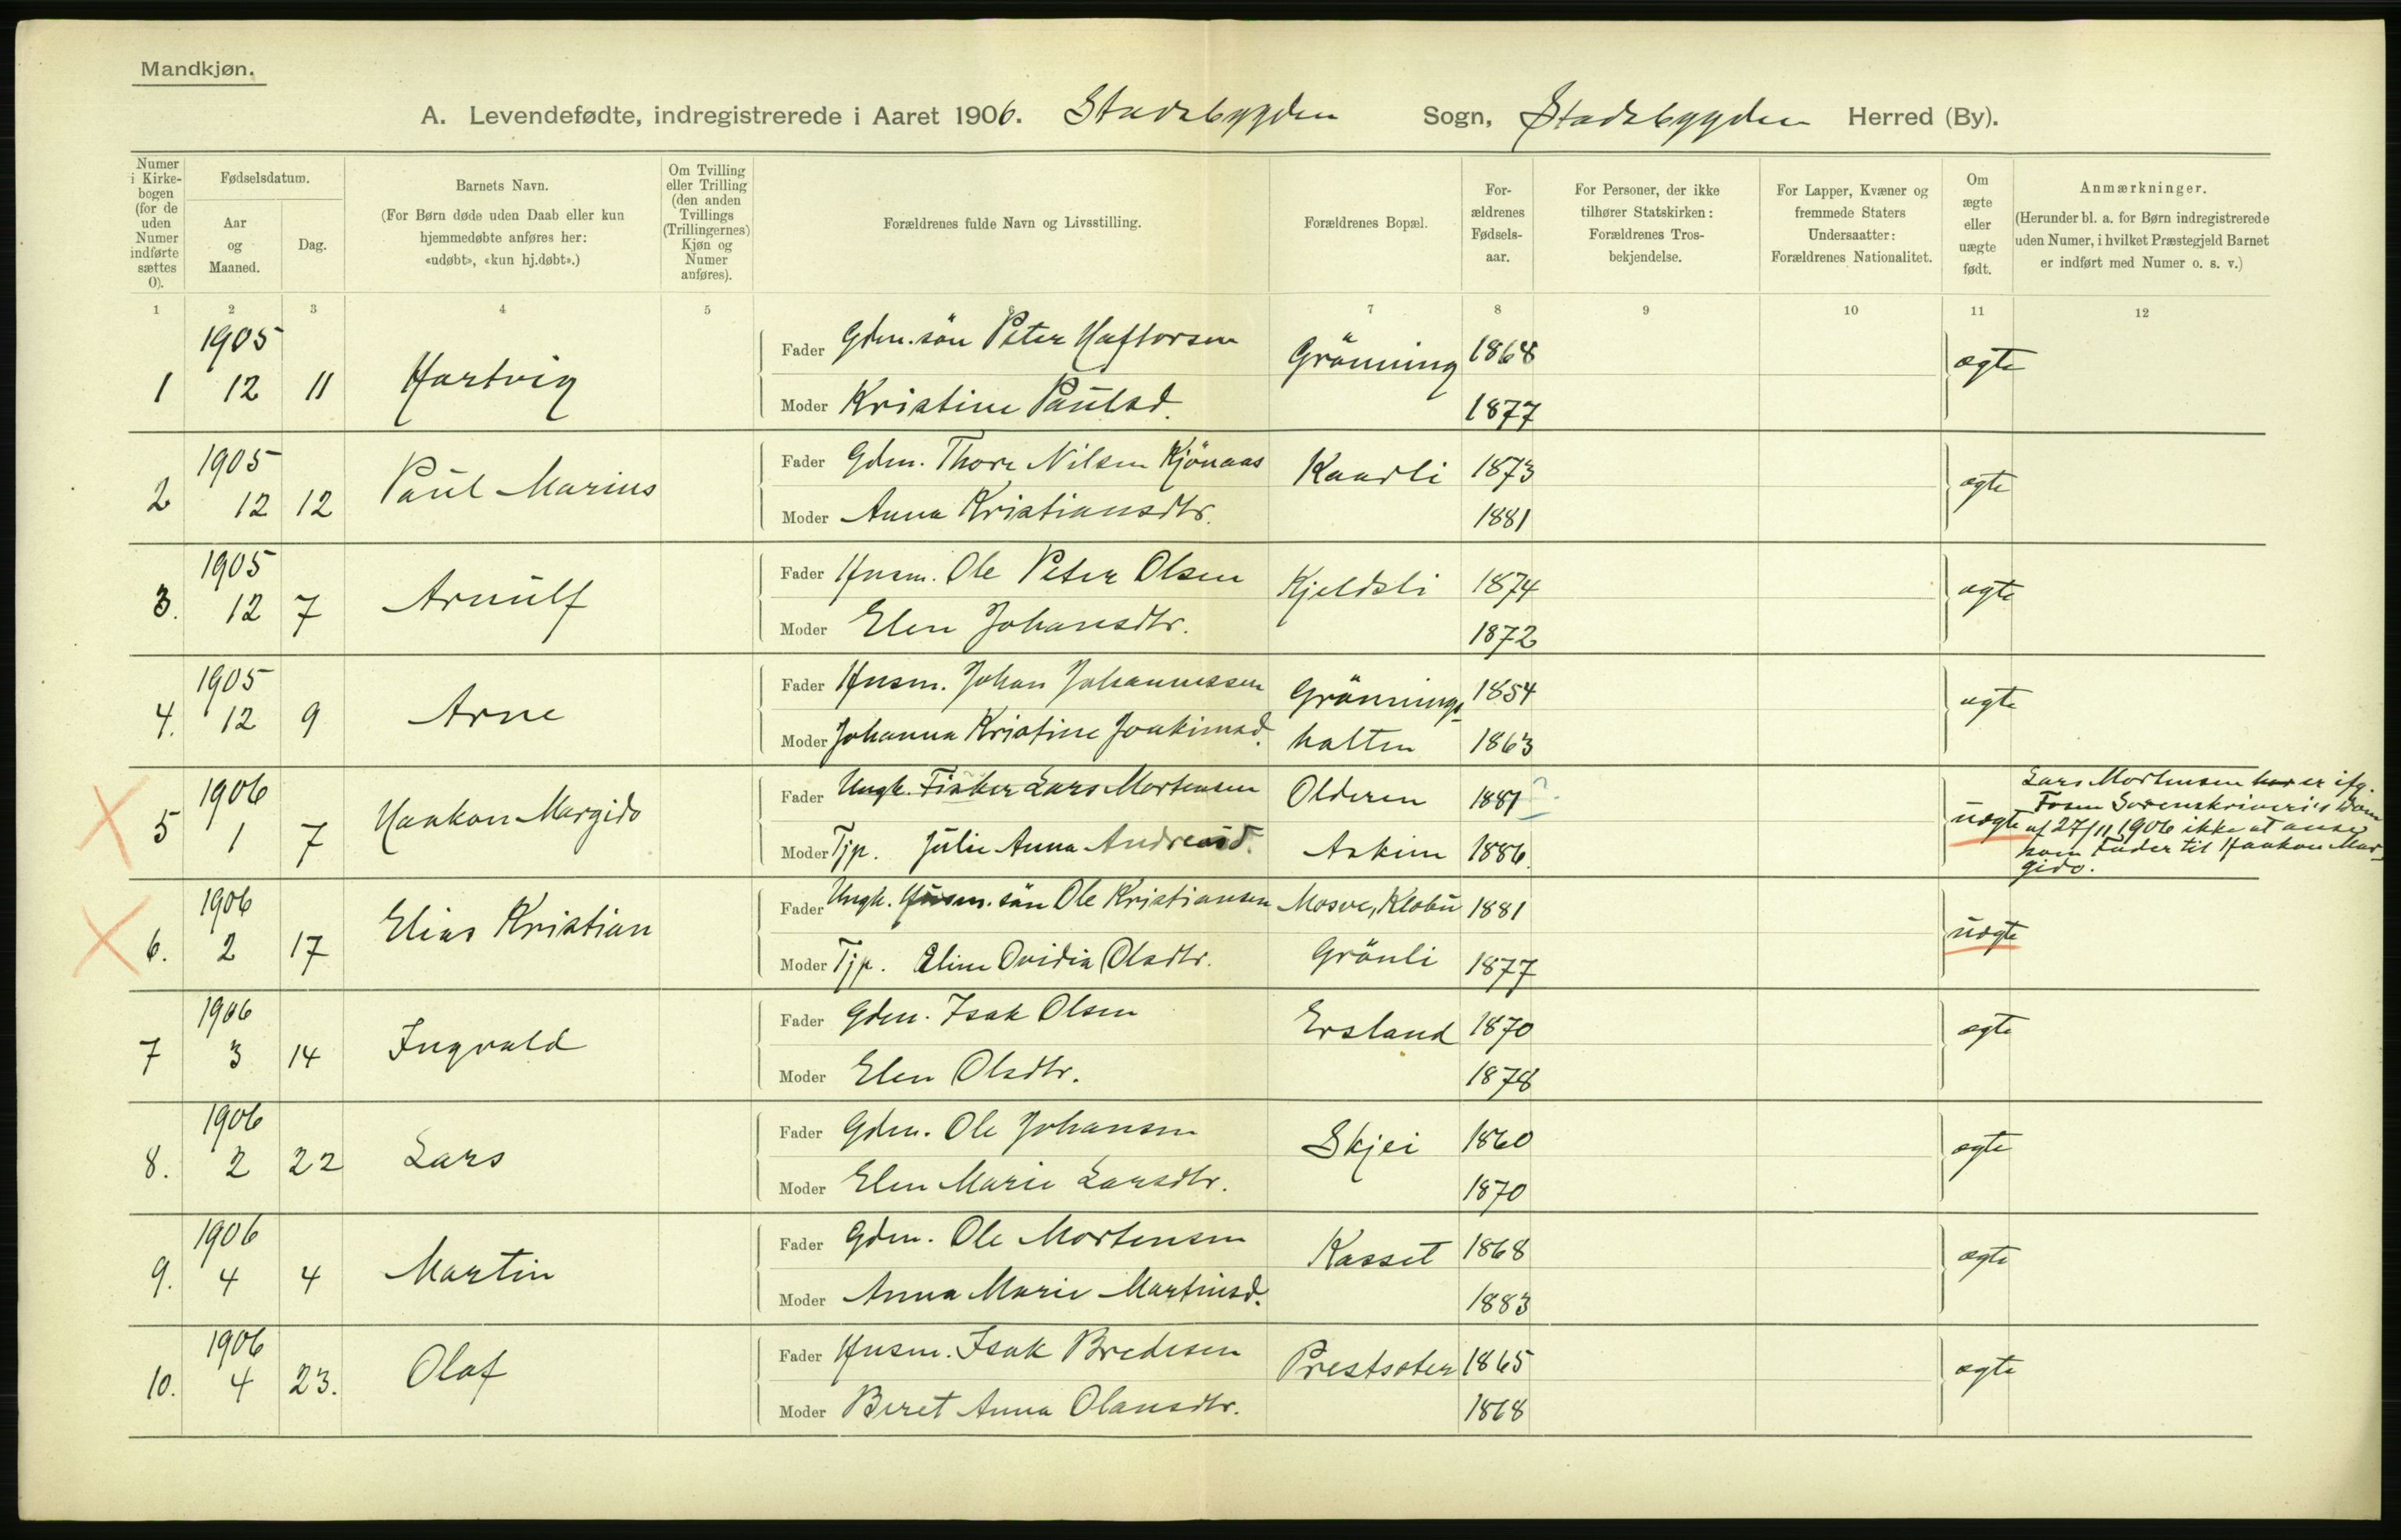 Mandkjøn.
A. Levendefødte, indregistrerede i Aaret 1906. Stadsbygden Sogn, Stadsbygden Herred (By).
Numer i Kirke- bogen (for de uden Numer indførte sættes 0).
Fødselsdatum.
Aar og Maaned.
Dag.
Barnets Navn.
(For Børn døde uden Daab eller kun hjemmedøbte anføres her: «udøbt», «kun hj.døbt».)
Om Tvilling eller Trilling (den anden Tvillings (Trillingernes) Kjøn og Numer anføres).
Forældrenes fulde Navn og Livsstilling.
Forældrenes Bopæl.
For- ældrenes Fødsels- aar.
For Personer, der ikke tilhører Statskirken: Forældrenes Tros- bekjendelse.
For Lapper, Kvæner og fremmede Staters Undersaatter: Forældrenes Nationalitet.
Om ægte eller uægte født.
Anmærkninger.
(Herunder bl. a. for Børn indregistrerede uden Numer, i hvilket Præstegjeld Barnet er indført med Numer o. s. v.)
1 2 3 4 5 6 7 8 9 10 11 12
1 1905 12 11 Hartvig
Fader Gdm. sön Peter Haftorsen Grönning 1868 ægte
Moder Kristine Paulsd. 1877
2 1905 12 12 Paul Marius
Fader Gdm. Thore Nilsen Kjönaas Kaarli 1873 ægte
Moder Anna Kristiansdtr. 1881
3. 1905 12 7 Arnulf
Fader Husm. Ole Peter Olsen Kjeldsli 1874 ægte
Moder Elen Johansdtr. 1872
4. 1905 12 9 Arne
Fader Husm. Johan Johannessen Grönnings- 1854 ægte
Moder Johanna Kristine Joakimsd. halten 1863
5 1906 1 7 Haakon Margido
Fader Ungk. Fisker Lars Mortensen Olderen 1881 ? uægte
Moder Tjp. Julie Anna Andreasd. Askim 1886.
Lars Mortensen har er ifg.
Fosen Sorenskriveris Dom
af 27/11 1906 ikke at anse
som Fader til Haakon Mar-
gido.
6. 1906 2 17 Elias Kristian
Fader Ungk. Husm. sön Ole Kristiansen Mosve, Klæbu 1881 uægte
Moder Tjp. Eline Ovidia Olsdtr. Grönli 1877
7 1906 3 14 Ingvald
Fader Gdm. Isak Olsen Ersland 1870 ægte
Moder Elen Olsdtr. 1878
8. 1906 2 22 Lars
Fader Gdm. Ole Johansen Skjei 1860 ægte
Moder Elen Marie Larsdtr. 1870
9. 1906 4 4 Martin
Fader Gdm. Ole Mortensen Kasset 1868 ægte
Moder Anna Marie Martinsd. 1883
10. 1906 4 23. Olaf
Fader Husm. Isak Bredesen Prestsæter 1865 ægte
Moder Beret Anna Olausdtr. 1868